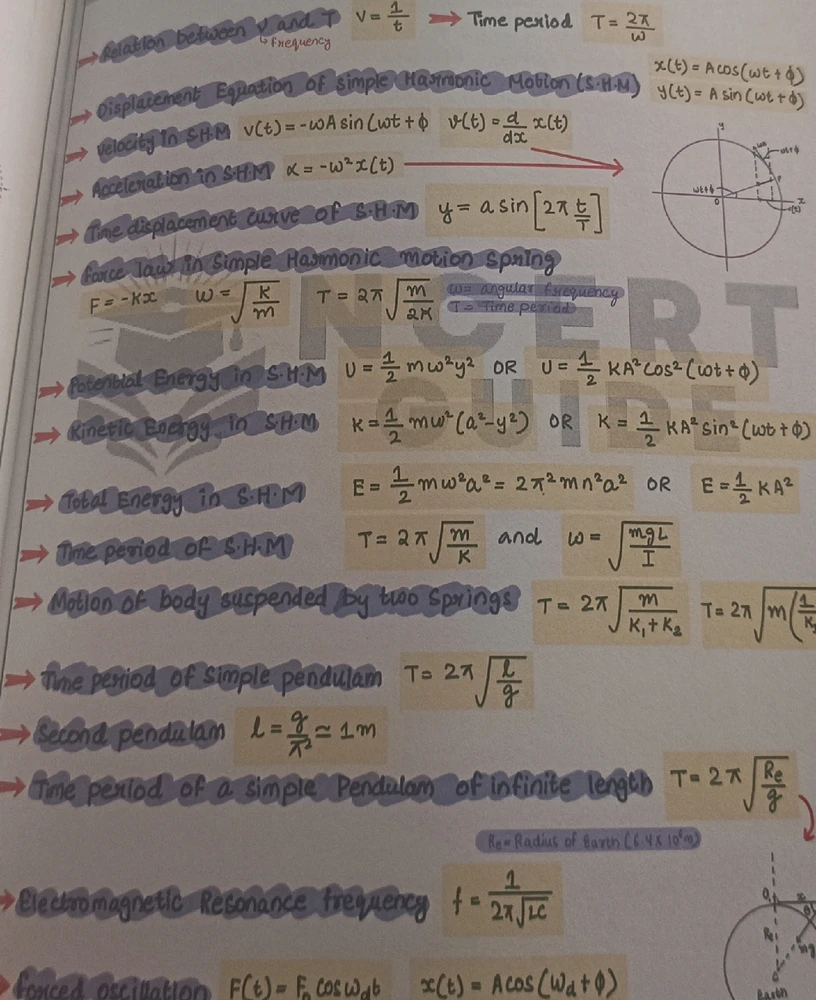 Relation between ν and T ν = 1/t → Time period T = 2π/ω
frequency
Displacement Equation of simple Harmonic Motion (S.H.M) x(t) = A cos(ωt + ϕ)
y(t) = A sin(ωt + ϕ)
Velocity in S.H.M v(t) = -ωA sin(ωt + ϕ v(t) = d/dx x(t)
Acceleration in S.H.M α = -ω² x(t)
Time displacement curve of S.H.M y = a sin[2π t/T]
Force law in Simple Harmonic motion Spring
F = -Kx ω = √(K/m) T = 2π √(m/2K) ω = angular frequency
T = Time period
NCERT
GUIDE
Potential Energy in S.H.M U = 1/2 mω²y² OR U = 1/2 KA² cos² (ωt + ϕ)
Kinetic Energy in S.H.M K = 1/2 mω² (a² - y²) OR K = 1/2 KA² sin² (ωt + ϕ)
Total Energy in S.H.M E = 1/2 mω²a² = 2π² mn²a² OR E = 1/2 KA²
Time period of S.H.M T = 2π √(m/K) and ω = √(mgL/I)
Motion of body suspended by two Springs T = 2π √(m/(K₁ + K₂)) T = 2π √m(1/K
Time period of Simple pendulam T = 2π √(l/g)
Second pendulam l = g/π² ≃ 1m
Time period of a simple Pendulam of infinite length T = 2π √(Re/g)
Re = Radius of Earth (6.4 X 10⁶m)
Electromagnetic Resonance frequency f = 1/(2π√LC)
Re
mg
Earth
Forced oscillation F(t) = F₀ cos ω_d t x(t) = A cos(ω_d + ϕ)